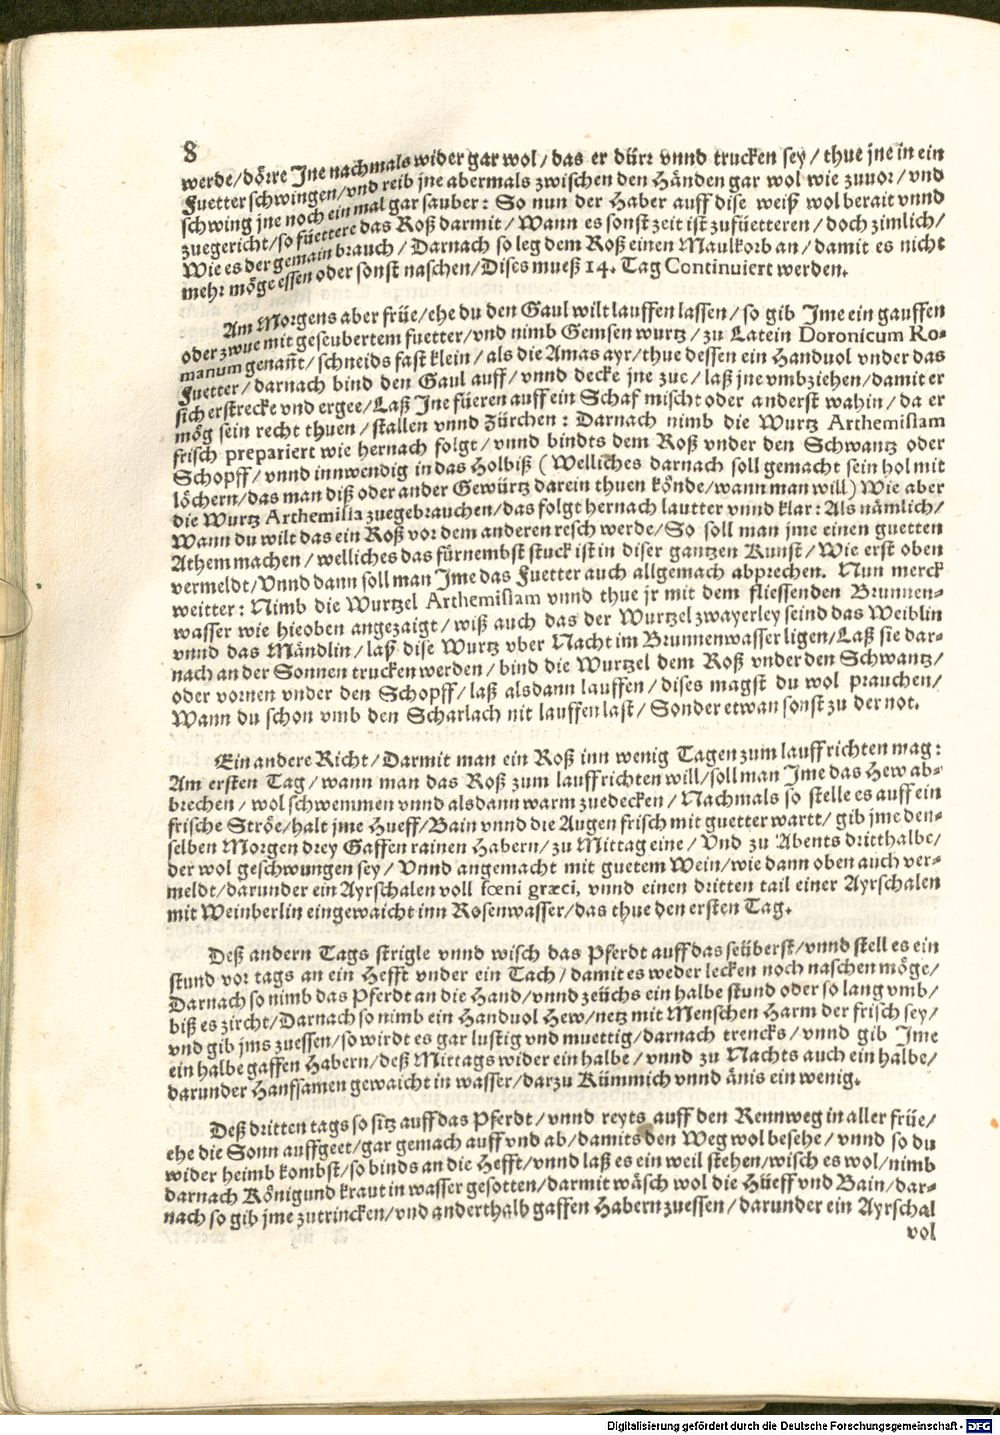 8
werde/dörre Jne nachmals wider gar wol/das er dürr vnnd trucken sey/thue jne in ein
Fuetterschwingen/vnd reib jne abermals zwischen den Händen gar wol wie zuuor/vnd
schwing jne noch ein mal gar sauber: So nun der Haber auff dise weiß wol berait vnnd
zuegericht/so füettere das Roß darmit/Wann es sonst zeit ist zufüetteren/doch zimlich/
Wie es der gemain brauch/Darnach so leg dem Roß einen Maulkorb an/damit es nicht
mehr möge essen oder sonst naschen/Dises mueß 14. Tag Continuiert werden.
Am Morgens aber früe/ehe du den Gaul wilt lauffen lassen/so gib Jme ein gauffen
oder zwue mit geseubertem fuetter/vnd nimb Gemsen wurtz/zu Latein Doronicum Ro-
manum genañt/schneids fast klein/als die Amas ayr/thue dessen ein Handuol vnder das
Fuetter/darnach bind den Gaul auff/vnnd decke jne zue/laß jne vmbziehen/damit er
sich erstrecke vnd ergee/Laß Jne füeren auff ein Schaf mischt oder anderst wahin/da er
mög sein recht thuen/stallen vnnd Fürchen: Darnach nimb die Wurtz Arthemisiam
frisch prepariert wie hernach folgt/vnnd bindts dem Roß vnder den Schwantz oder
Schopff/vnnd innwendig in das Holbiß (Welliches darnach soll gemacht sein hol mit
löchern/das man diß oder ander Gewürtz darein thuen könde/wann man will) Wie aber
die Wurtz Arthemisia zuegebrauchen/das folgt hernach lautter vnnd klar: Als nämlich/
Wann du wilt das ein Roß vor dem anderen resch werde/So soll man jme einen guetten
Athem machen/welliches das fürnembst stuck ist in diser gantzen Kunst/Wie erst oben
vermeldt/Vnnd dann soll man Jme das Fuetter auch allgemach abprechen. Nun merck
weitter: Nimb die Wurtzel Arthemisiam vnnd thue jr mit dem fliessenden Brunnen-
wasser wie hieoben angezaigt/wiß auch das der Wurtzel zwayerley seind das Weiblin
vnnd das Mändlin/laß dise Wurtz vber Nacht im Brunnenwasser ligen/Laß sie dar-
nach an der Sonnen trucken werden/bind die Wurtzel dem Roß vnder den Schwantz/
oder vornen vnder den Schopff/laß alsdann lauffen/dises magst du wol prauchen/
Wann du schon vmb den Scharlach nit lauffen last/Sonder etwan sonst zu der not.
Ein andere Richt/Darmit man ein Roß inn wenig Tagen zum lauff richten mag:
Am ersten Tag/wann man das Roß zum lauff richten will/soll man Jme das Hew ab-
brechen/wol schwemmen vnnd alsdann warm zuedecken/Nachmals so stelle es auff ein
frische Ströe/halt jme Hueff/Bain vnnd die Augen frisch mit guetter wartt/gib jme den-
selben Morgen drey Gaffen rainen Habern/zu Mittag eine/Vnd zu Abents dritthalbe/
der wol geschwungen sey/Vnnd angemacht mit guetem Wein/wie dann oben auch ver-
meldt/darunder ein Ayrschalen voll fœni græci, vnnd einen dritten tail einer Ayrschalen
mit Weinberlin eingewaicht inn Rosenwasser/das thue den ersten Tag.
Deß andern Tags strigle vnnd wisch das Pferdt auff das seüberst/vnnd stell es ein
stund vor tags an ein Hefft vnder ein Tach/damit es weder lecken noch naschen möge/
Darnach so nimb das Pferdt an die Hand/vnnd zeüchs ein halbe stund oder so lang vmb/
biß es zircht/Darnach so nimb ein Handuol Hew/netz mit Menschen Harm der frisch sey/
vnd gib jms zuessen/so wirdt es gar lustig vnd muettig/darnach trencks/vnnd gib Jme
ein halbe gaffen Habern/deß Mittags wider ein halbe/vnnd zu Nachts auch ein halbe/
darunder Hanfsamen gewaicht in wasser/darzu Kümmich vnnd änis ein wenig.
Deß dritten tags so sitz auff das Pferdt/vnnd reyts auff den Rennweg in aller früe/
ehe die Sonn auffgeet/gar gemach auff vnd ab/damits den Weg wol besehe/vnnd so du
wider heimb kombst/so binds an die Hefft/vnnd laß es ein weil stehen/wisch es wol/nimb
darnach Königund kraut in wasser gesotten/darmit wäsch wol die Hüeff vnd Bain/dar-
nach so gib jme zutrincken/vnd anderthalb gaffen Habern zuessen/darunder ein Ayrschal
vol
Digitalisierung gefördert durch die Deutsche Forschungsgemeinschaft - DFG